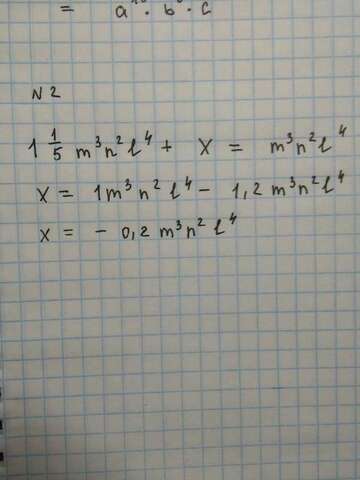 = a¹⁰ · b⁰ · c
N 2
1 1/5 m³n²l⁴ + x = m³n²l⁴
x = 1m³n²l⁴ - 1,2 m³n²l⁴
x = - 0,2 m³n²l⁴